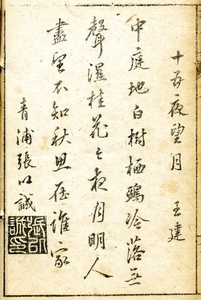 十五夜望月 王建
中庭地白樹栖鴉冷落無
聲濕桂花今夜月明人
盡望不知秋思在誰家
青浦張以誠